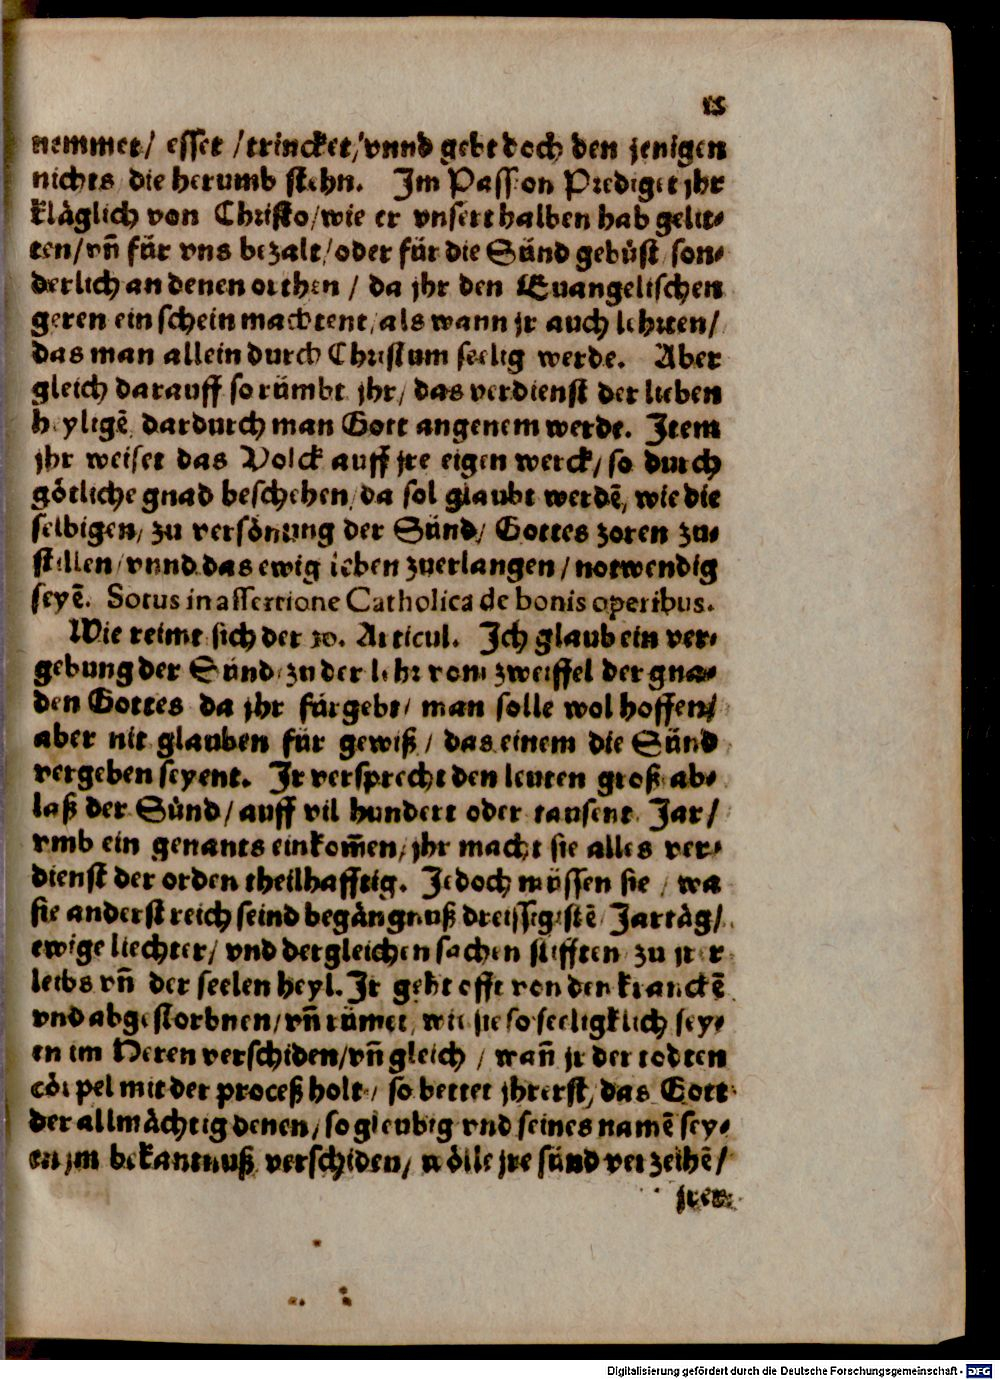 15
nemmet/ esset /trincket/vnnd gebt doch den jenigen
nichts die herumb stehn. Im Passion Prediget jhr
kläglich von Christo/wie er vnsert halben hab gelit-
ten/vñ für vns bezalt/oder für die Sünd gebüst son-
derlich an denen orthen / da jhr den Euangelischen
geren ein schein machtent/als wann jr auch lehrten/
das man allein durch Christum seelig werde. Aber
gleich darauff so rümbt jhr/ das verdienst der lieben
heyligẽ dardurch man Gott angenem werde. Item
jhr weiset das Volck auff jre eigen werck/ so durch
götliche gnad beschehen/da sol glaubt werdẽ, wie die
selbigen/ zu versönung der Sünd/ Gottes zoren zu-
stillen/vnnd das ewig leben zuerlangen/notwendig
seyẽ. Sotus in assertione Catholica de bonis operibus.
Wie reimt sich der 10. Articul. Ich glaub ein ver-
gebung der Sünd/zu der lehr vom zweiffel der gna-
den Gottes da jhr fürgebt/ man solle wol hoffen/
aber nit glauben für gewiß/ das einem die Sünd
vergeben seyent. Ir versprecht den leuten groß ab-
laß der Sünd/auff vil hundert oder tausent Jar/
vmb ein genants einkom̃en/jhr macht sie alles ver-
dienst der orden theilhafftig. Jedoch müssen sie / wa
sie anderst reich seind begängnuß dreissigistẽ Jartäg/
ewige liechter/ vnd dergleichen sachen stifften zu jrer
leibs vñ der seelen heyl. Ir geht offt von den kranckẽ
vnd abgestorbnen/vñ rümet wie sie so seeligklich sey-
en im Heren verschiden/vñ gleich / wañ jr der todten
cörpel mit der proceß holt/ so bettet jhr erst/ das Gott
der allmächtig denen/so gleubig vnd seines namẽ sey-
en jm bekantnuß verschiden/ wölle jre sünd verzeihẽ/
jren
Digitalisierung gefördert durch die Deutsche Forschungsgemeinschaft - DFG